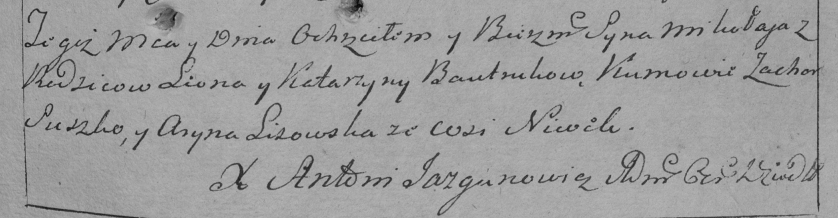 Tegoż Mca y Dnia Ochrzciłem y Bierzm. Syna Mikołaja z
Rodzicow Liona y Katarzyny Bautrukow, Kumowie Zachor
Suszko, y Aryna Lisowska ze wsi Niwek.
X Antoni Jazgunowicz Adm